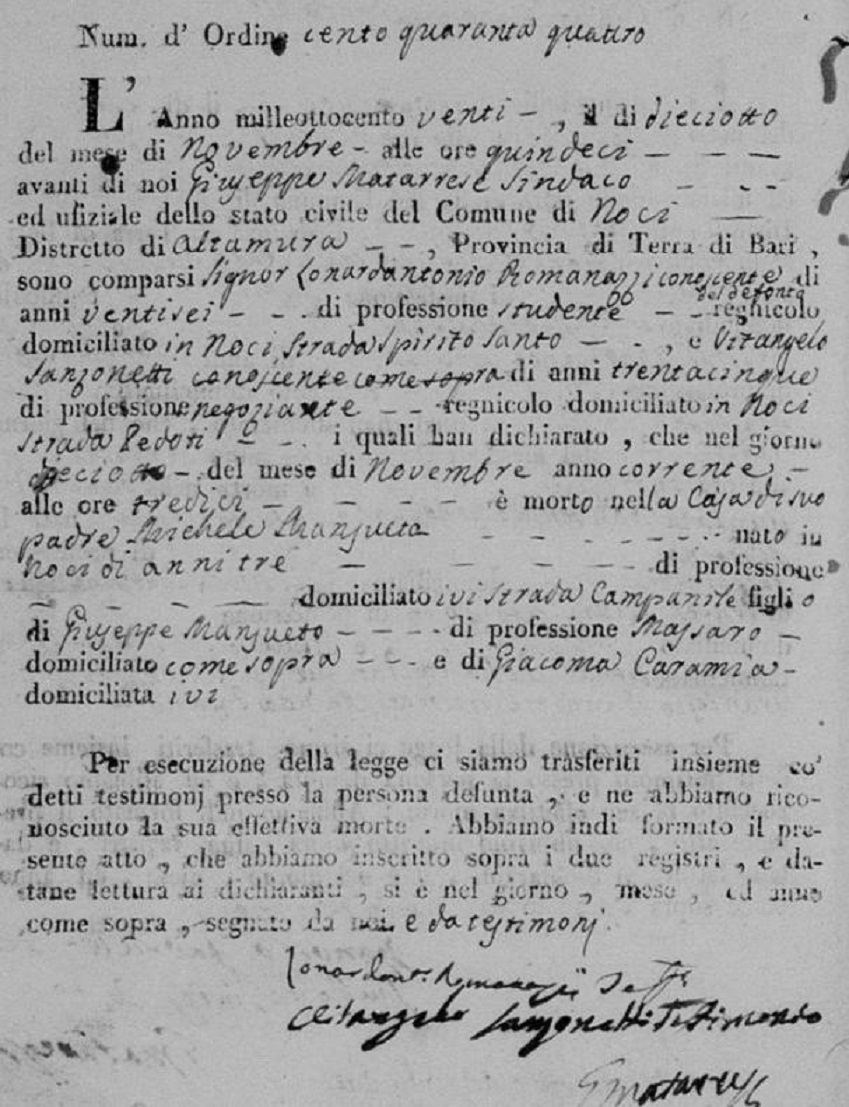 Num. d' Ordine cento quaranta quattro
L' Anno milleottocento venti - , il di dieciotto
del mese di Novembre - alle ore quindeci - - -
avanti di noi Giuseppe Matarrese Sindaco - - -
ed ufiziale dello stato civile del Comune di Noci -
Distretto di Altamura - - , Provincia di Terra di Bari ,
sono comparsi Signor Lonardantonio Romanazzi conoscente di
del defonto
anni ventisei - - - di professione studente - - regnicolo
domiciliato in Noci Strada Spirito Santo - - - , e Vitangelo
Sanzonetti conoscente come sopra di anni trentacinque
di professione negoziante - - - regnicolo domiciliato in Noci
Strada Pedoti - - - i quali han dichiarato , che nel giorno
dieciotto - del mese di Novembre anno corrente -
alle ore tredici - - - - - è morto nella Casa di suo
padre Michele Mansueto - - - - - - nato in
Noci di anni tre - - - - - di professione
- - - - domiciliato ivi Strada Campanile figlio
di Giuseppe Mansueto - - - - di professione Massaro -
domiciliato come sopra - - - e di Giacoma Caramia -
domiciliata ivi
Per esecuzione della legge ci siamo trasferiti insieme co'
detti testimonj presso la persona defunta , e ne abbiamo rico-
nosciuto la sua effettiva morte . Abbiamo indi formato il pre-
sente atto , che abbiamo inscritto sopra i due registri , e da-
tane lettura ai dichiaranti , si è nel giorno , mese , ed anno
come sopra , segnato da noi e da testimonj.
Romanazzi
Vitangelo Sanzonetti Testimonio
Matarrese